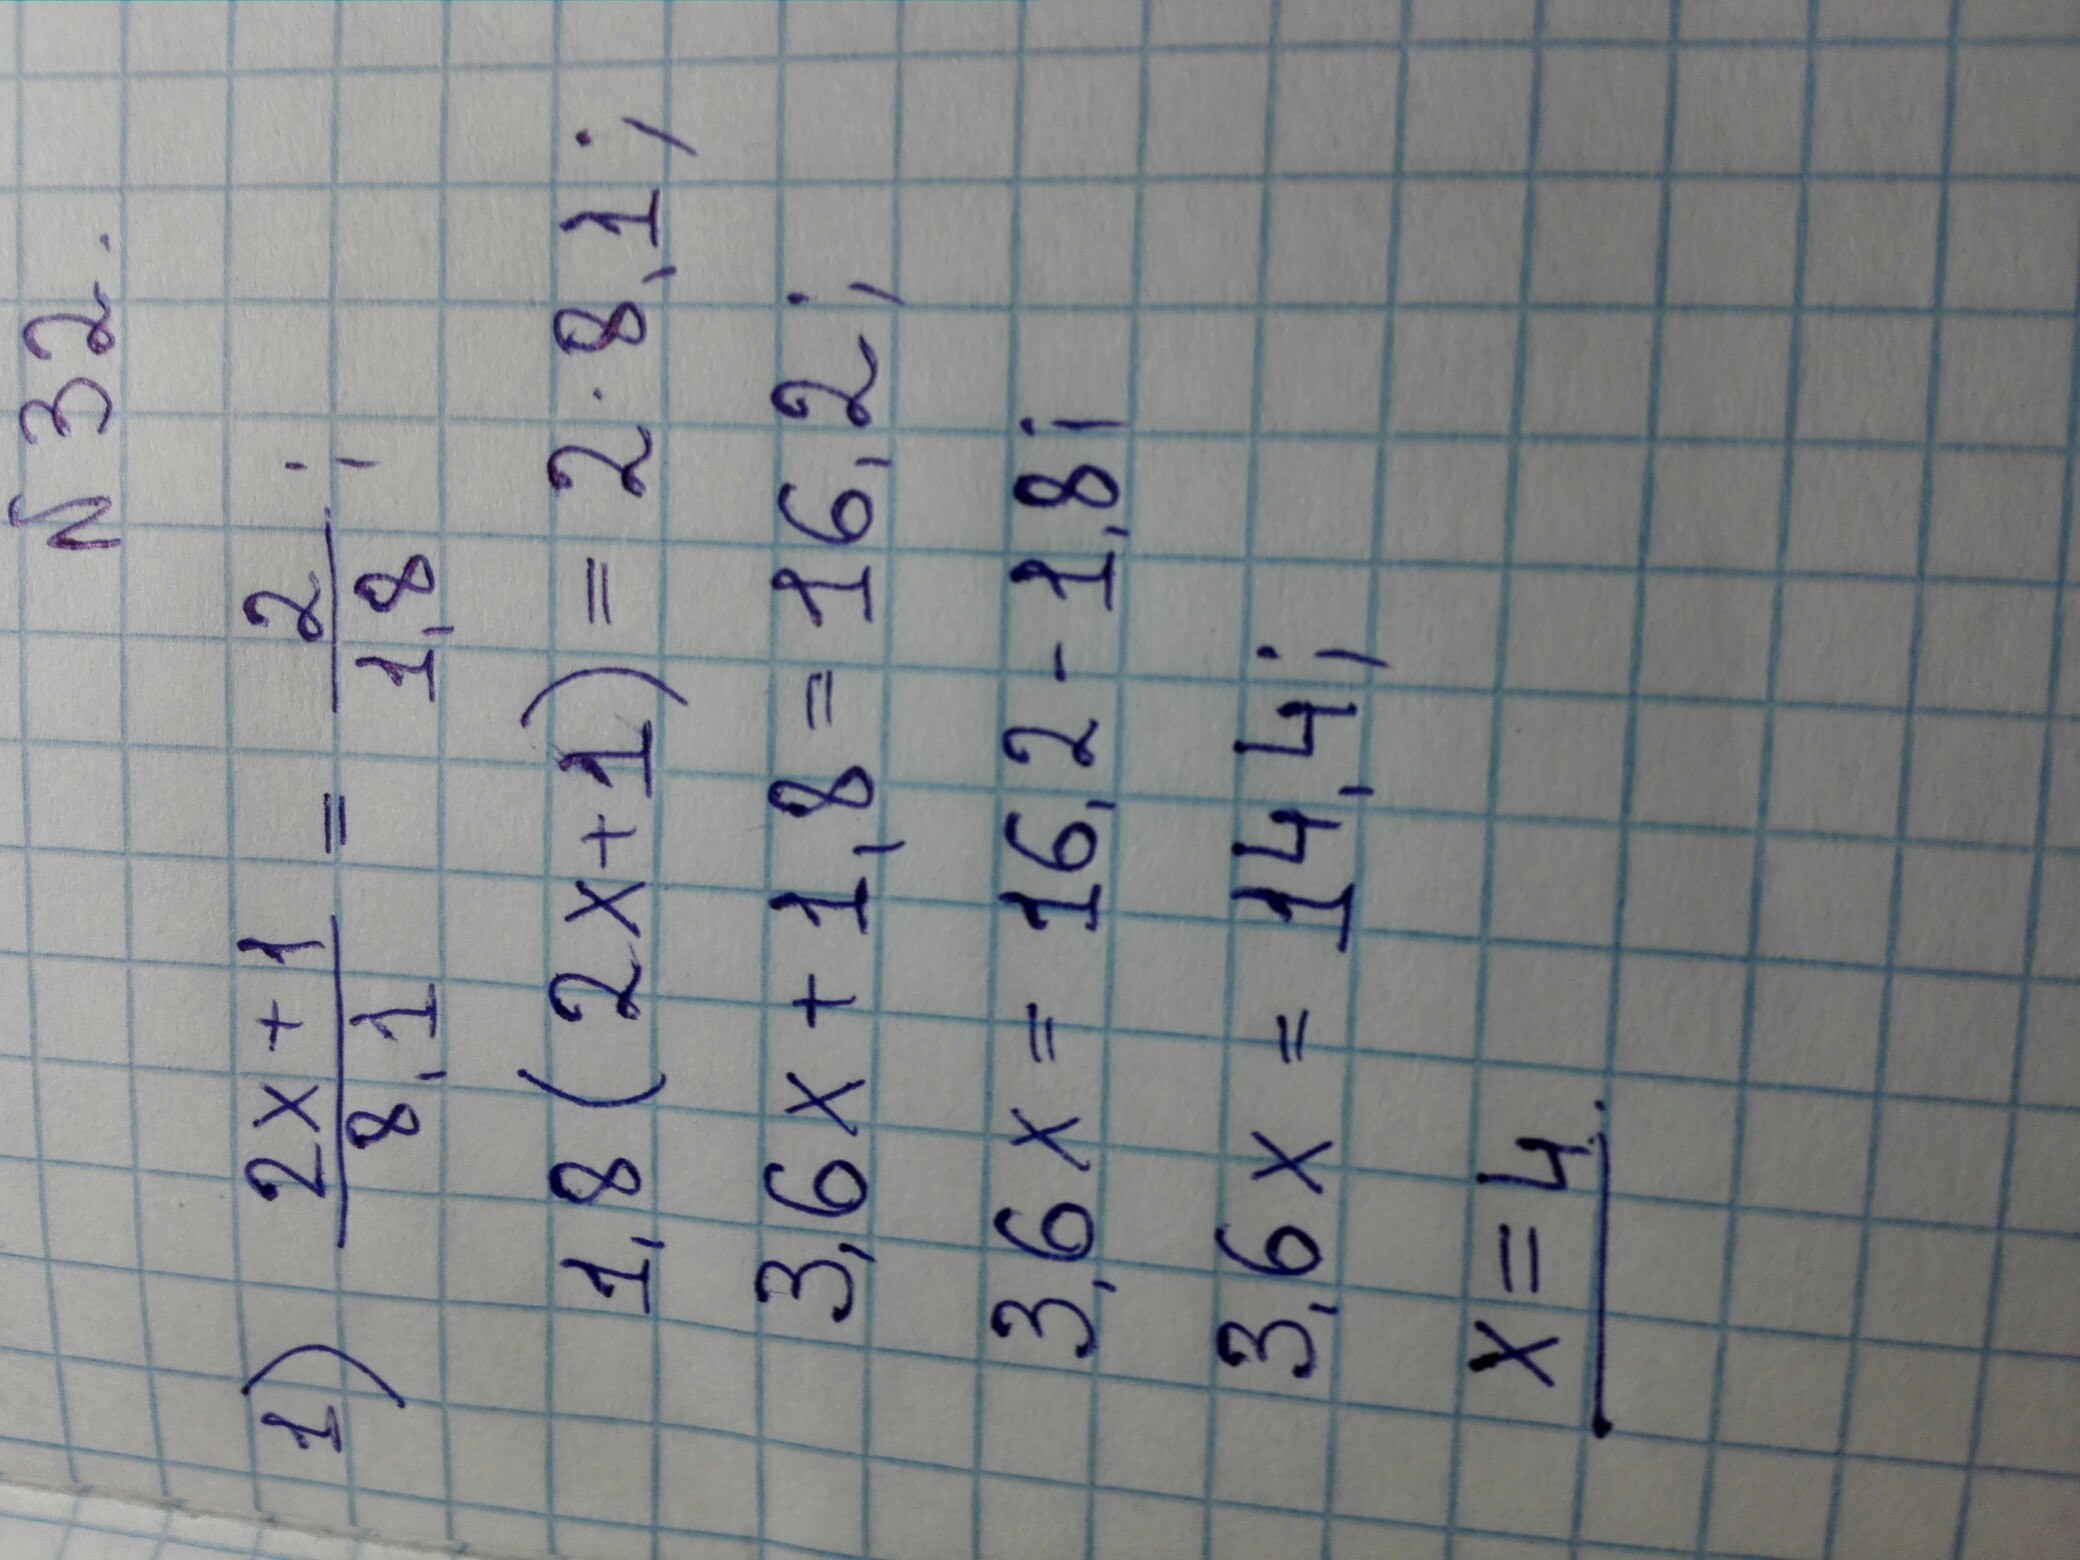 N 32.
1) \frac{2x+1}{8,1} = \frac{2}{1,8};
1,8(2x+1) = 2·8,1;
3,6x + 1,8 = 16,2;
3,6x = 16,2 - 1,8;
3,6x = 14,4;
x = 4.